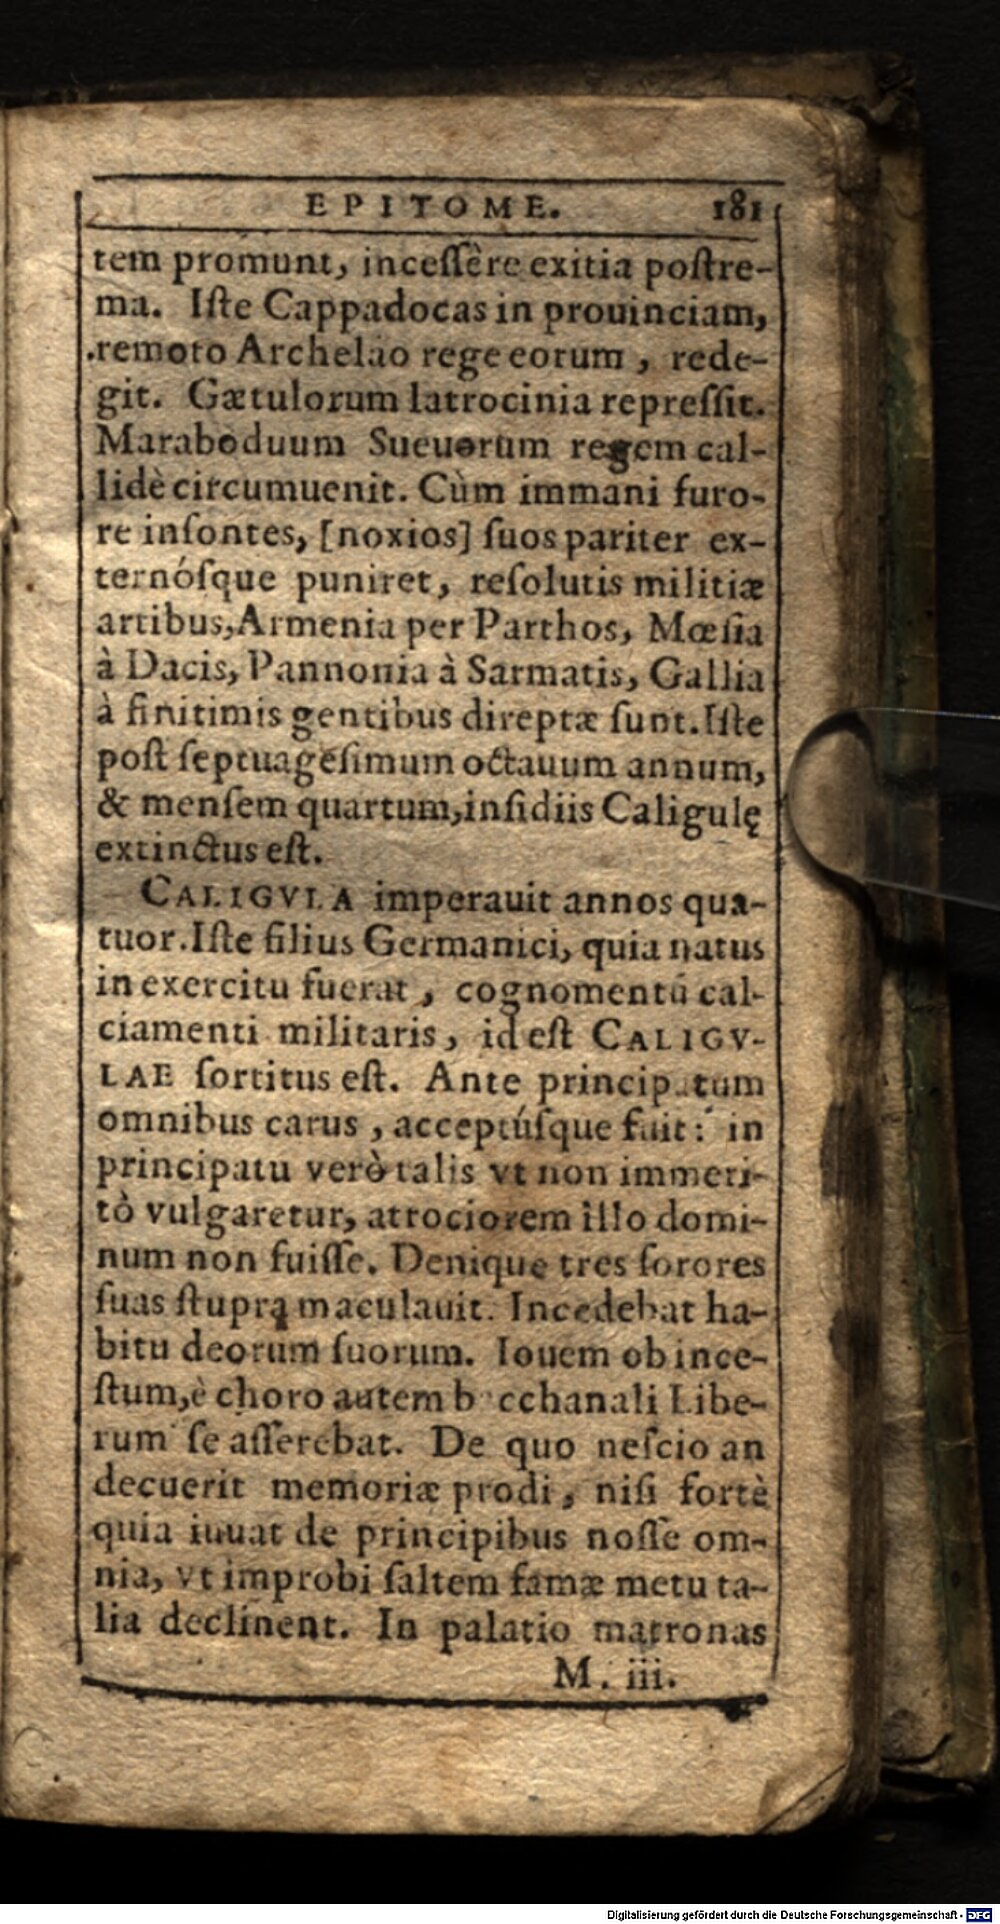 EPITOME. 181
tem promunt, incessêre exitia postre-
ma. Iste Cappadocas in prouinciam,
remoto Archelao rege eorum, rede-
git. Gætulorum latrocinia repressit.
Maraboduum Sueuorum regem cal-
lidè circumuenit. Cùm immani furo-
re insontes, [noxios] suos pariter ex-
ternósque puniret, resolutis militiæ
artibus, Armenia per Parthos, Mœsia
à Dacis, Pannonia à Sarmatis, Gallia
à finitimis gentibus direptæ sunt. Iste
post septuagesimum octauum annum,
& mensem quartum, insidiis Caligulę
extinctus est.
CALIGVLA imperauit annos qua-
tuor. Iste filius Germanici, quia natus
in exercitu fuerat, cognomentū cal-
ciamenti militaris, id est CALIGV-
LAE sortitus est. Ante principatum
omnibus carus, acceptúsque fuit: in
principatu verò talis vt non immeri-
tò vulgaretur, atrociorem illo domi-
num non fuisse. Denique tres sorores
suas stupro maculauit. Incedebat ha-
bitu deorum suorum. Iouem ob ince-
stum, è choro autem bacchanali Libe-
rum se asserebat. De quo nescio an
decuerit memoriæ prodi, nisi fortè
quia iuuat de principibus nosse om-
nia, vt improbi saltem famæ metu ta-
lia declinent. In palatio matronas
M. iii.
Digitalisierung gefördert durch die Deutsche Forschungsgemeinschaft - DFG